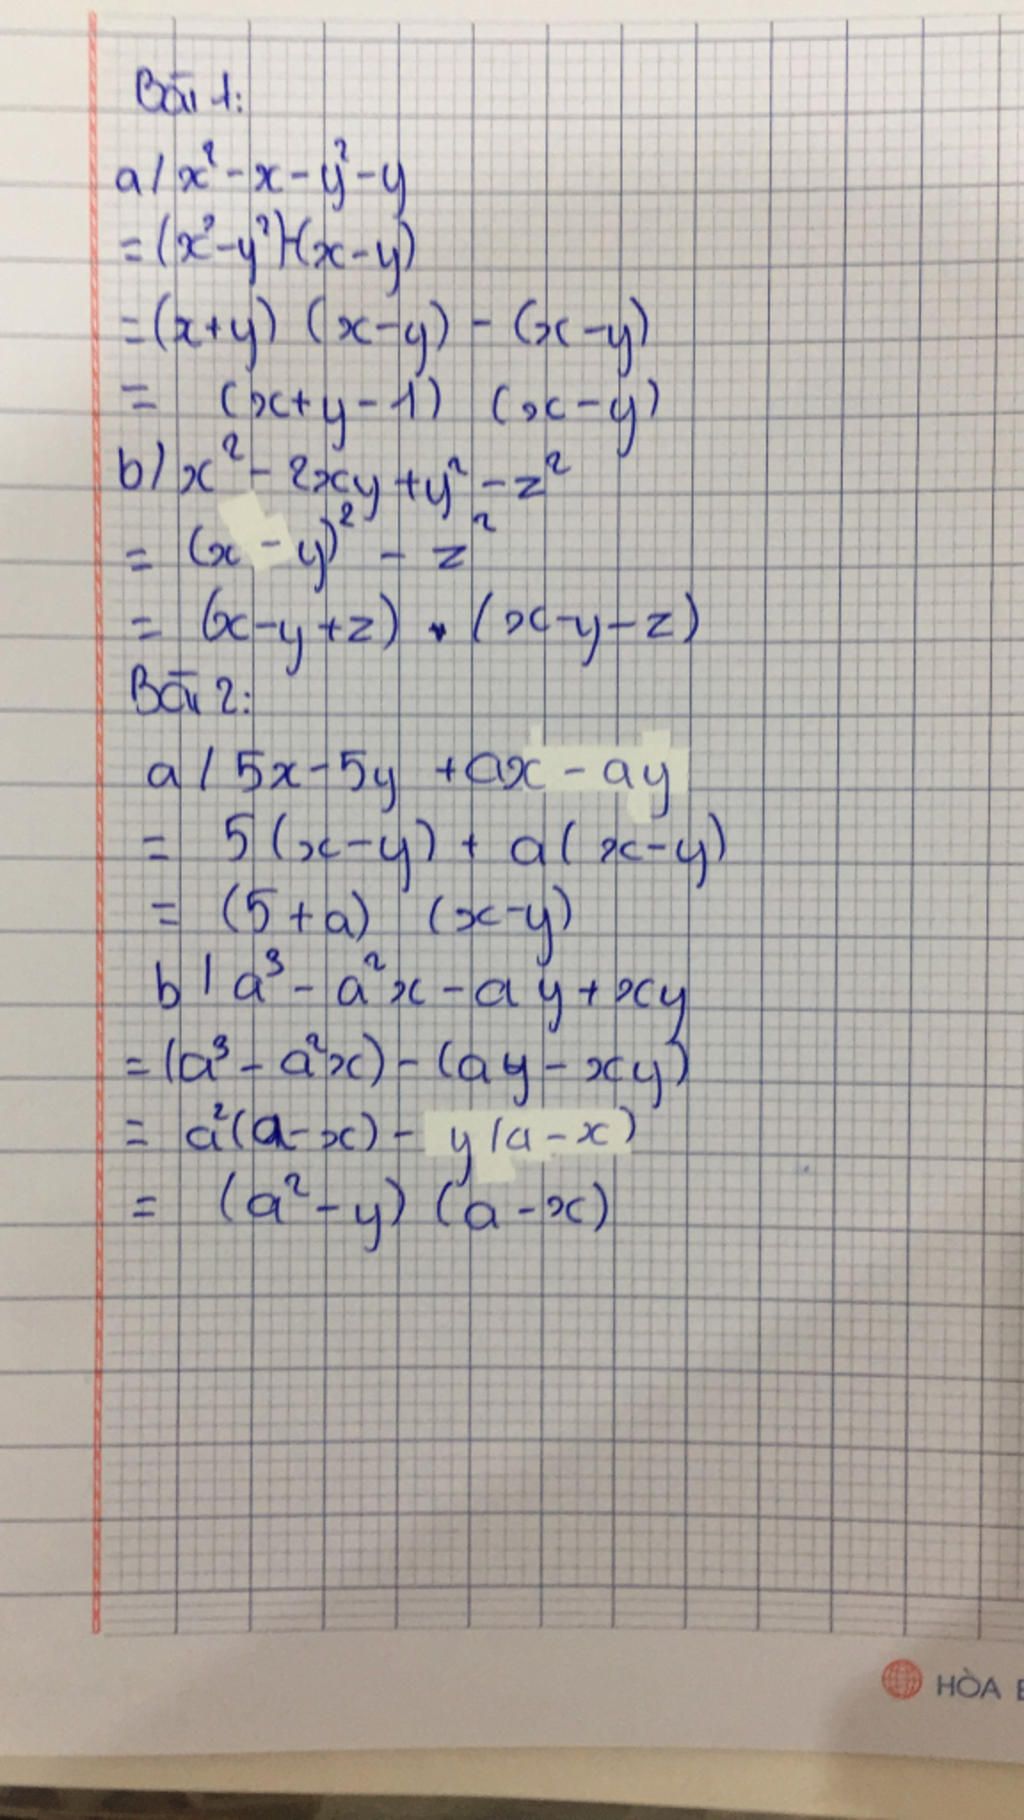 Bài 1:
a/ x² - x - y² - y
= (x² - y²) - (x - y)
= (x + y) (x - y) - (x - y)
= (x + y - 1) (x - y)
b/ x² - 2xy + y² - z²
= (x - y)² - z²
= (x - y + z) . (x - y - z)
Bài 2:
a/ 5x - 5y + ax - ay
= 5(x - y) + a(x - y)
= (5 + a) (x - y)
b/ a³ - a²x - ay + xy
= (a³ - a²x) - (ay - xy)
= a²(a - x) - y(a - x)
= (a² - y) (a - x)
HÒA